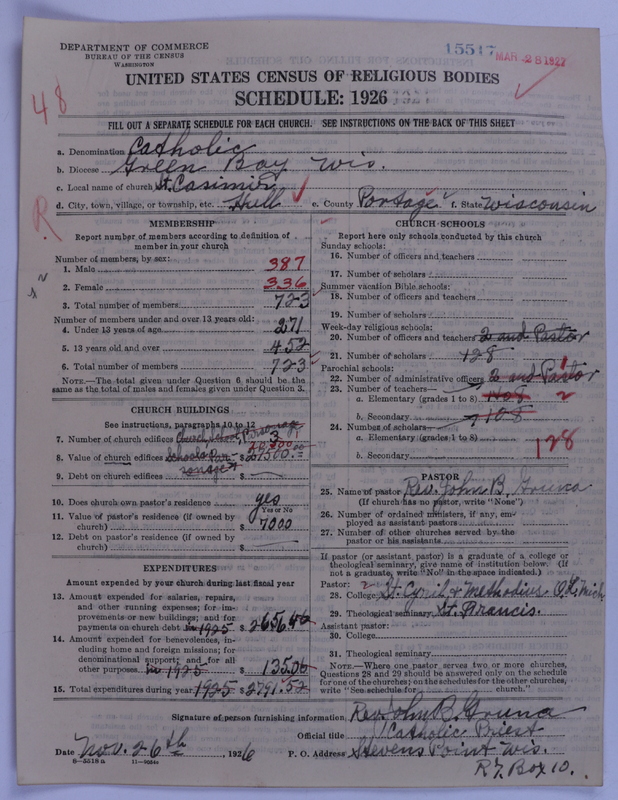 DEPARTMENT OF COMMERCE
BUREAU OF THE CENSUS
WASHINGTON
15517
MAR 28 1927
UNITED STATES CENSUS OF RELIGIOUS BODIES
SCHEDULE: 1926
48
FILL OUT A SEPARATE SCHEDULE FOR EACH CHURCH. SEE INSTRUCTIONS ON THE BACK OF THIS SHEET
a. Denomination Catholic
b. Diocese Green Bay Wis.
c. Local name of church St. Casimir
d. City, town, village, or township, etc. Hull e. County Portage f. State Wisconsin
R
MEMBERSHIP
Report number of members according to definition of member in your church
Number of members, by sex:
1. Male 387
2. Female 336
3. Total number of members 723
Number of members under and over 13 years old:
4. Under 13 years of age 271
5. 13 years old and over 452
6. Total number of members 723
NOTE.—The total given under Question 6 should be the same as the total of males and females given under Question 3.
CHURCH BUILDINGS
See instructions, paragraphs 10 to 12
7. Number of church edifices Church, School, Parsonage 3
8. Value of church edifices School & Parsonage $
9. Debt on church edifices $
10. Does church own pastor's residence yes
Yes or No
11. Value of pastor's residence (if owned by church) $ 7000
12. Debt on pastor's residence (if owned by church) $
EXPENDITURES
Amount expended by your church during last fiscal year
13. Amount expended for salaries, repairs, and other running expenses; for improvements or new buildings; and for payments on church debt in 1925 $ 2656.46
14. Amount expended for benevolences, including home and foreign missions; for denominational support; and for all other purposes in 1925 $ 135.06
15. Total expenditures during year 1925 $ 2791.52
CHURCH SCHOOLS
Report here only schools conducted by this church
Sunday schools:
16. Number of officers and teachers
17. Number of scholars
Summer vacation Bible schools:
18. Number of officers and teachers
19. Number of scholars
Week-day religious schools:
20. Number of officers and teachers 2 and Pastor
21. Number of scholars 128
Parochial schools:
22. Number of administrative officers 2 and Pastor 1
23. Number of teachers—
a. Elementary (grades 1 to 8) 108 2
b. Secondary 108
24. Number of scholars—
a. Elementary (grades 1 to 8) 128
b. Secondary
PASTOR
25. Name of pastor Rev. John B. Gruna
(If church has no pastor, write "None")
26. Number of ordained ministers, if any, employed as assistant pastors
27. Number of other churches served by the pastor or his assistants
If pastor (or assistant pastor) is a graduate of a college or theological seminary, give name of institution below. (If not a graduate, write "No" in the space indicated.)
Pastor: 2
28. College St. Cyril & Methodius O.L. Mich
29. Theological seminary St. Francis.
Assistant pastor:
30. College
31. Theological seminary
NOTE.—Where one pastor serves two or more churches, Questions 28 and 29 should be answered only on the schedule for one of the churches; on the schedules for the other churches, write "See schedule for ............ church."
Signature of person furnishing information Rev. John B. Gruna
Official title Catholic Priest
Date Nov. 26th, 1926 P. O. Address Stevens Point Wis.
8—5518 a
R7. Box 10.